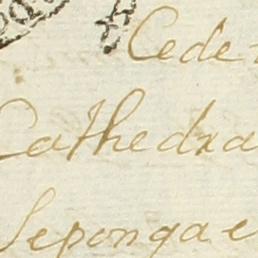 Cede-
Cathedra
Seponga e